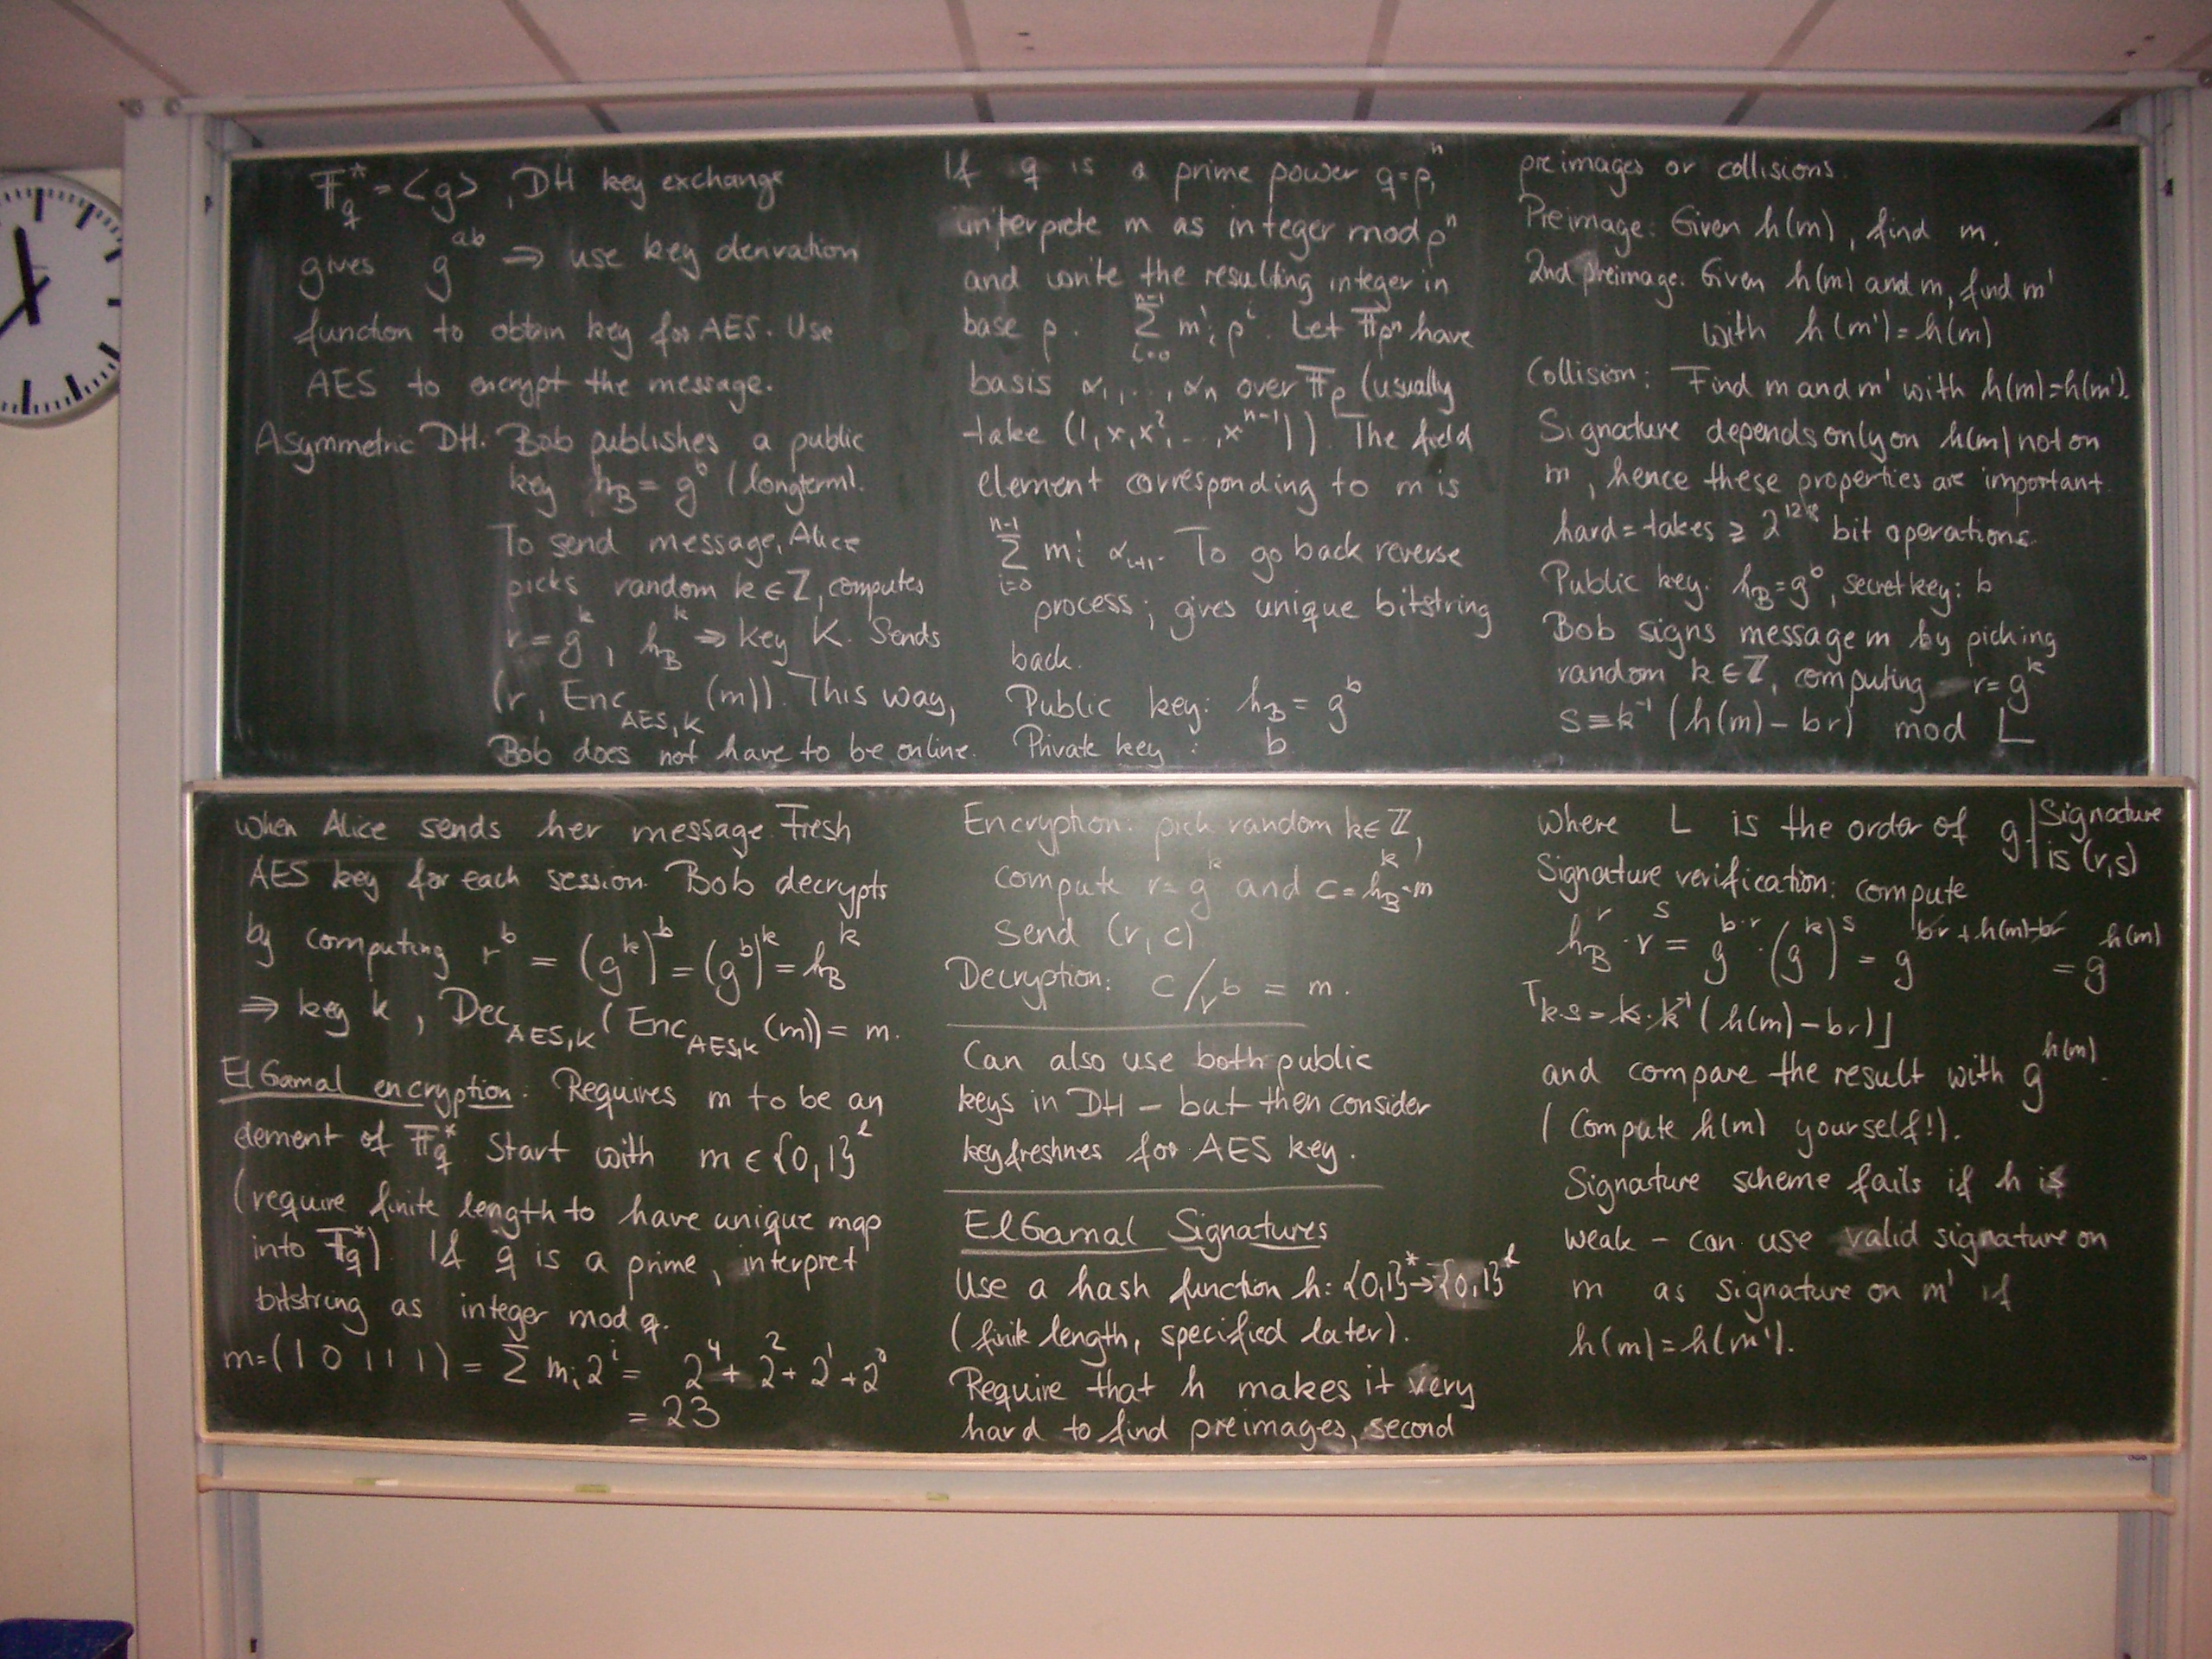 𝔽_q^* = <g>, DH key exchange
gives g^{ab} ⇒ use key derivation
function to obtain key for AES. Use
AES to encrypt the message.
Asymmetric DH. Bob publishes a public
key h_B = g^b (longterm).
To send message, Alice
picks random k ∈ ℤ, computes
r = g^k, h_B^k ⇒ key K. Sends
(r, Enc_{AES,K}(m)). This way,
Bob does not have to be online.
when Alice sends her message. Fresh
AES key for each session. Bob decrypts
by computing r^b = (g^k)^b = (g^b)^k = h_B^k
⇒ key k, Dec_{AES,K}(Enc_{AES,K}(m)) = m.
ElGamal encryption: Requires m to be an
element of 𝔽_q^*. Start with m ∈ {0,1}^l
(require finite length to have unique map
into 𝔽_q^*). If q is a prime, interpret
bitstring as integer mod q.
m=(1 0 1 1 1) = Σ m_i 2^i = 2^4 + 2^2 + 2^1 + 2^0
= 23
If q is a prime power q=p^n,
interprete m as integer mod p^n
and write the resulting integer in
base p. Σ_{i=0}^{n-1} m'_i p^i. Let 𝔽_{p^n} have
basis α_1, ..., α_n over 𝔽_p (usually
take (1, x, x^2, ..., x^{n-1})). The field
element corresponding to m is
Σ_{i=0}^{n-1} m'_i α_{i+1}. To go back reverse
process; gives unique bitstring
back.
Public key: h_B = g^b
Private key: b
Encryption: pick random k ∈ ℤ,
compute r = g^k and c = h_B^k · m
send (r, c)
Decryption: c/r^b = m.
Can also use both public
keys in DH – but then consider
keyfreshnes for AES key.
ElGamal Signatures
Use a hash function h: {0,1}^* → {0,1}^l
(finite length, specified later).
Require that h makes it very
hard to find preimages, second
preimages or collisions.
Preimage: Given h(m), find m.
2nd preimage. Given h(m) and m, find m'
with h(m') = h(m)
Collision: Find m and m' with h(m) = h(m').
Signature depends only on h(m) not on
m, hence these properties are important
hard = takes ≥ 2^{128} bit operations.
Public key: h_B = g^b, secret key: b
Bob signs message m by picking
random k ∈ ℤ, computing r = g^k
s ≡ k^{-1} (h(m) - br) mod L
where L is the order of g. | Signature
is (r,s)
Signature verification: compute
h_B^r · r^s = g^{b·r} · (g^k)^s = g^{br + h(m) - br} = g^{h(m)}
⌈ks = k · k^{-1} (h(m) - br)⌋
and compare the result with g^{h(m)}.
(Compute h(m) yourself!).
Signature scheme fails if h is
weak – can use valid signature on
m as signature on m' if
h(m) = h(m').